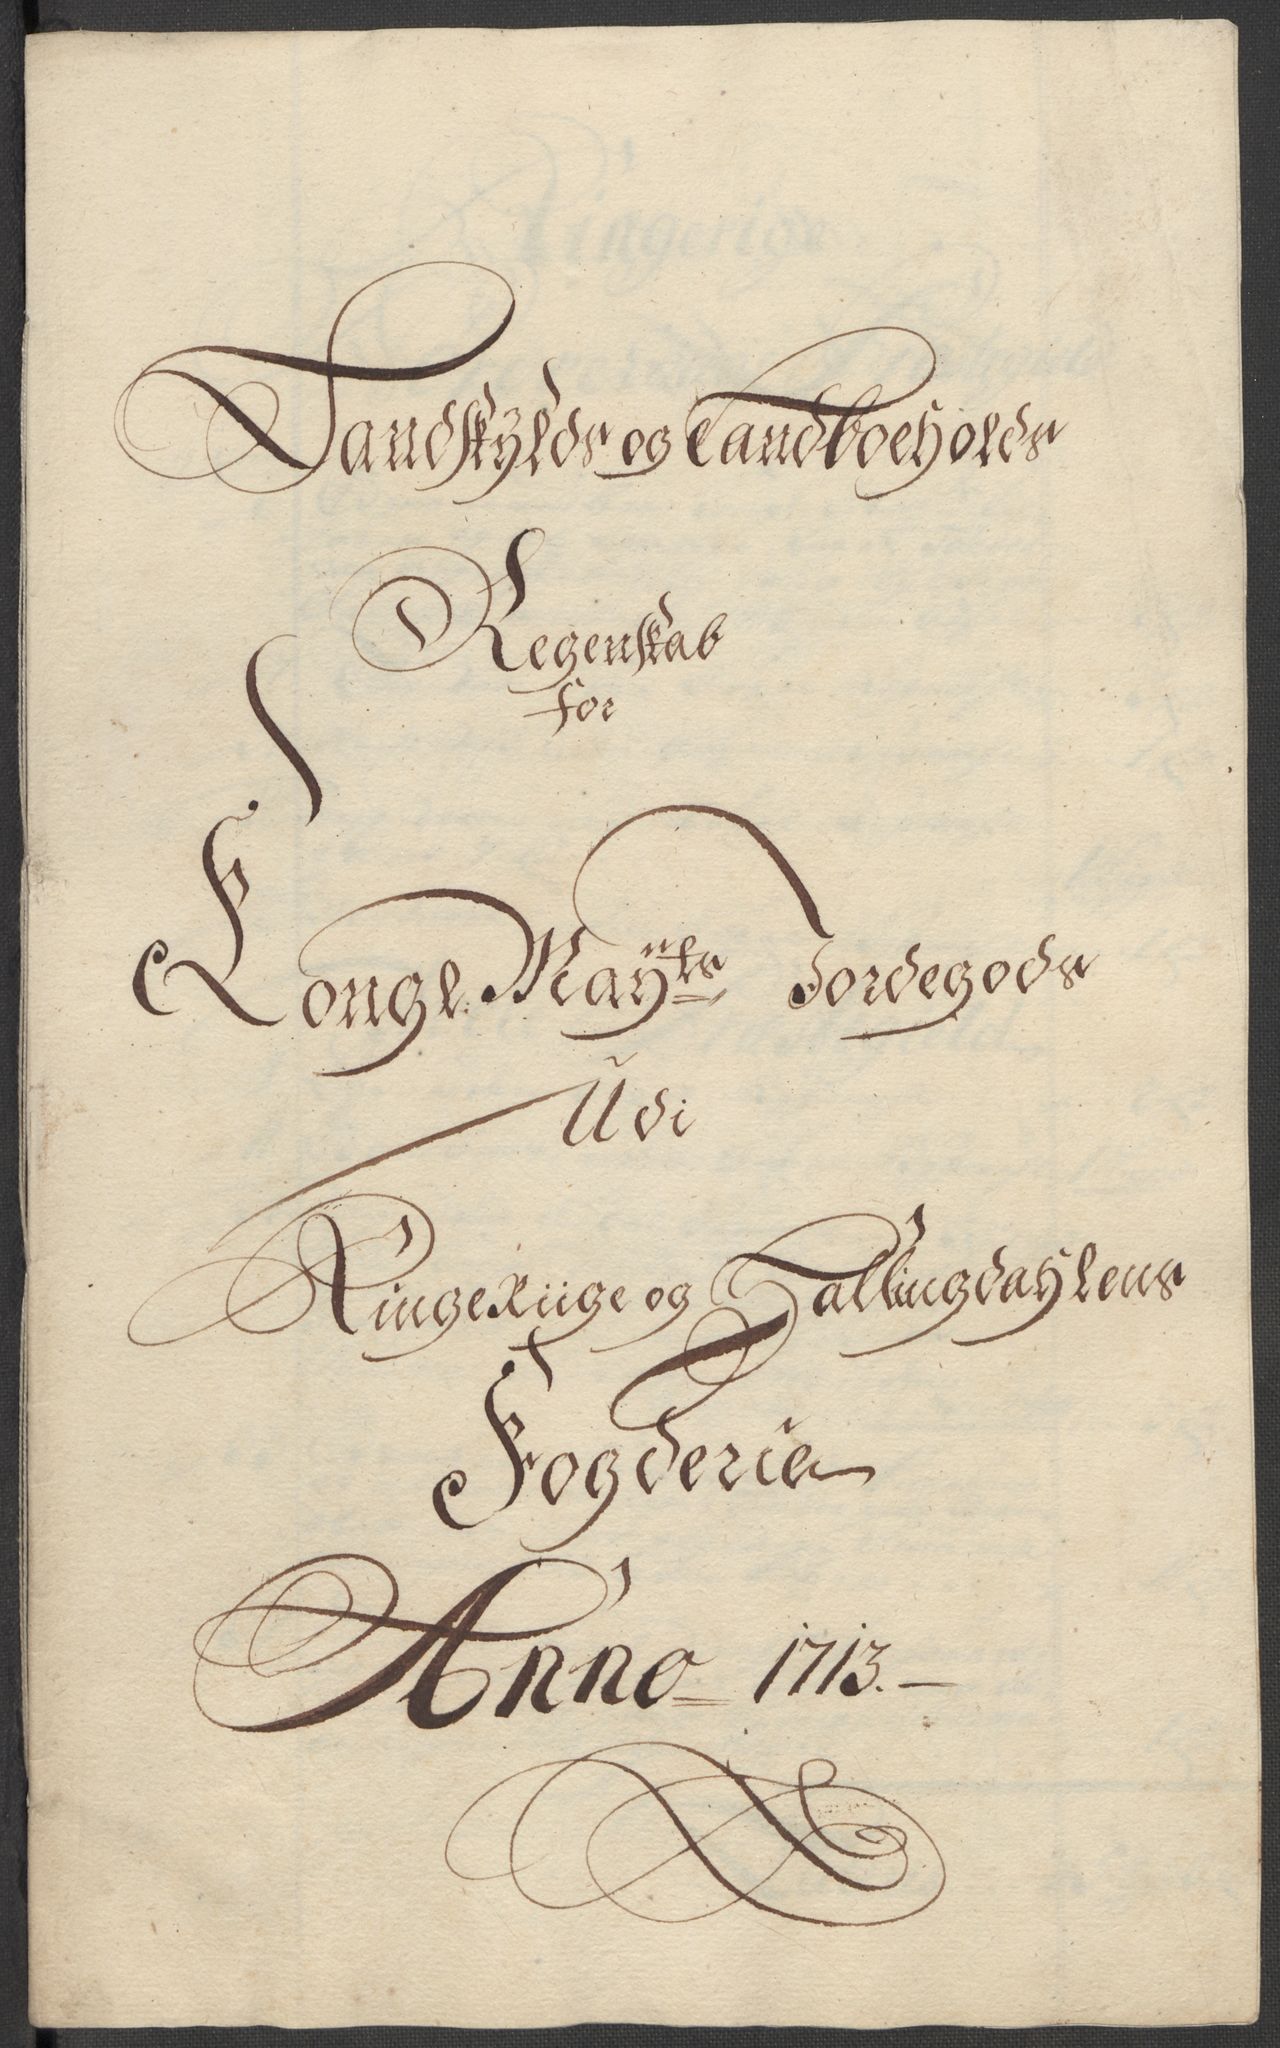 Landskylds og Landboeholds
Regenskab
for
Kongl. Mayts Jordegods
Udi
Ringeriige og Hallingdahlens
Fogderie
Anno 1713.